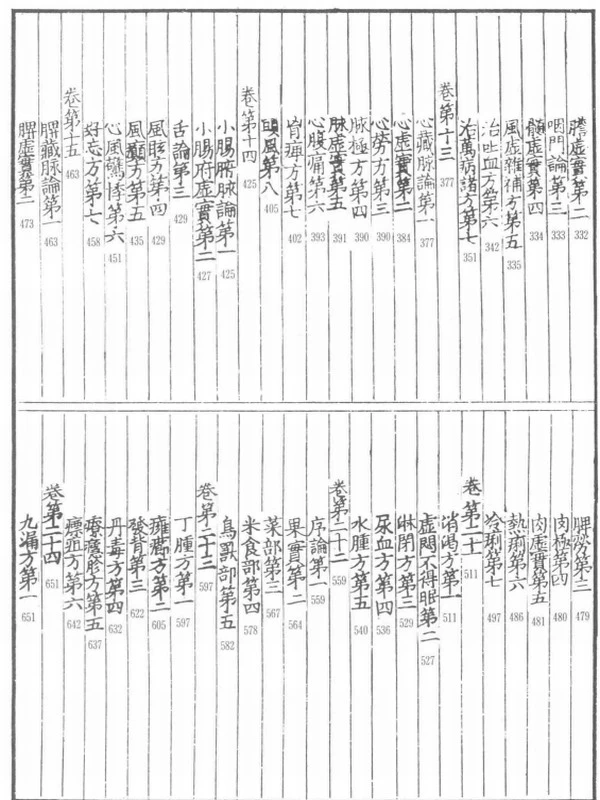 膽虛實第二 332
咽門論第三 333
髓虛實第四 334
風虛雜補方第五 335
治吐血方第六 342
治萬病諸方第七 351
卷第十三 377
心藏脉論第一 377
心虛實第二 384
心勞方第三 390
脉極方第四 390
脉虛實第五 391
心腹痛第六 393
胷痺方第七 402
頭風第八 405
卷第十四 425
小腸腑脉論第一 425
小腸府虛實第二 427
舌論第三 429
風眩方第四 429
風癲方第五 435
心風驚悸第六 451
好忘方第七 458
卷第十五 463
脾藏脉論第一 463
脾虛實第二 473
脾勞第三 479
肉極第四 480
肉虛實第五 481
熱痢第六 486
冷痢第七 497
卷第二十一 511
消渴方第一 511
虛悶不得眠第二 527
淋閉方第三 529
尿血方第四 536
水腫方第五 540
卷第二十二 559
序論第一 559
果實第二 564
菜部第三 567
米食部第四 578
鳥獸部第五 582
卷第二十三 597
丁腫方第一 597
癰疽方第二 605
發背第三 622
丹毒方第四 632
方第五 637
瘭疽方第六 642
卷第二十四 651
九漏方第一 651